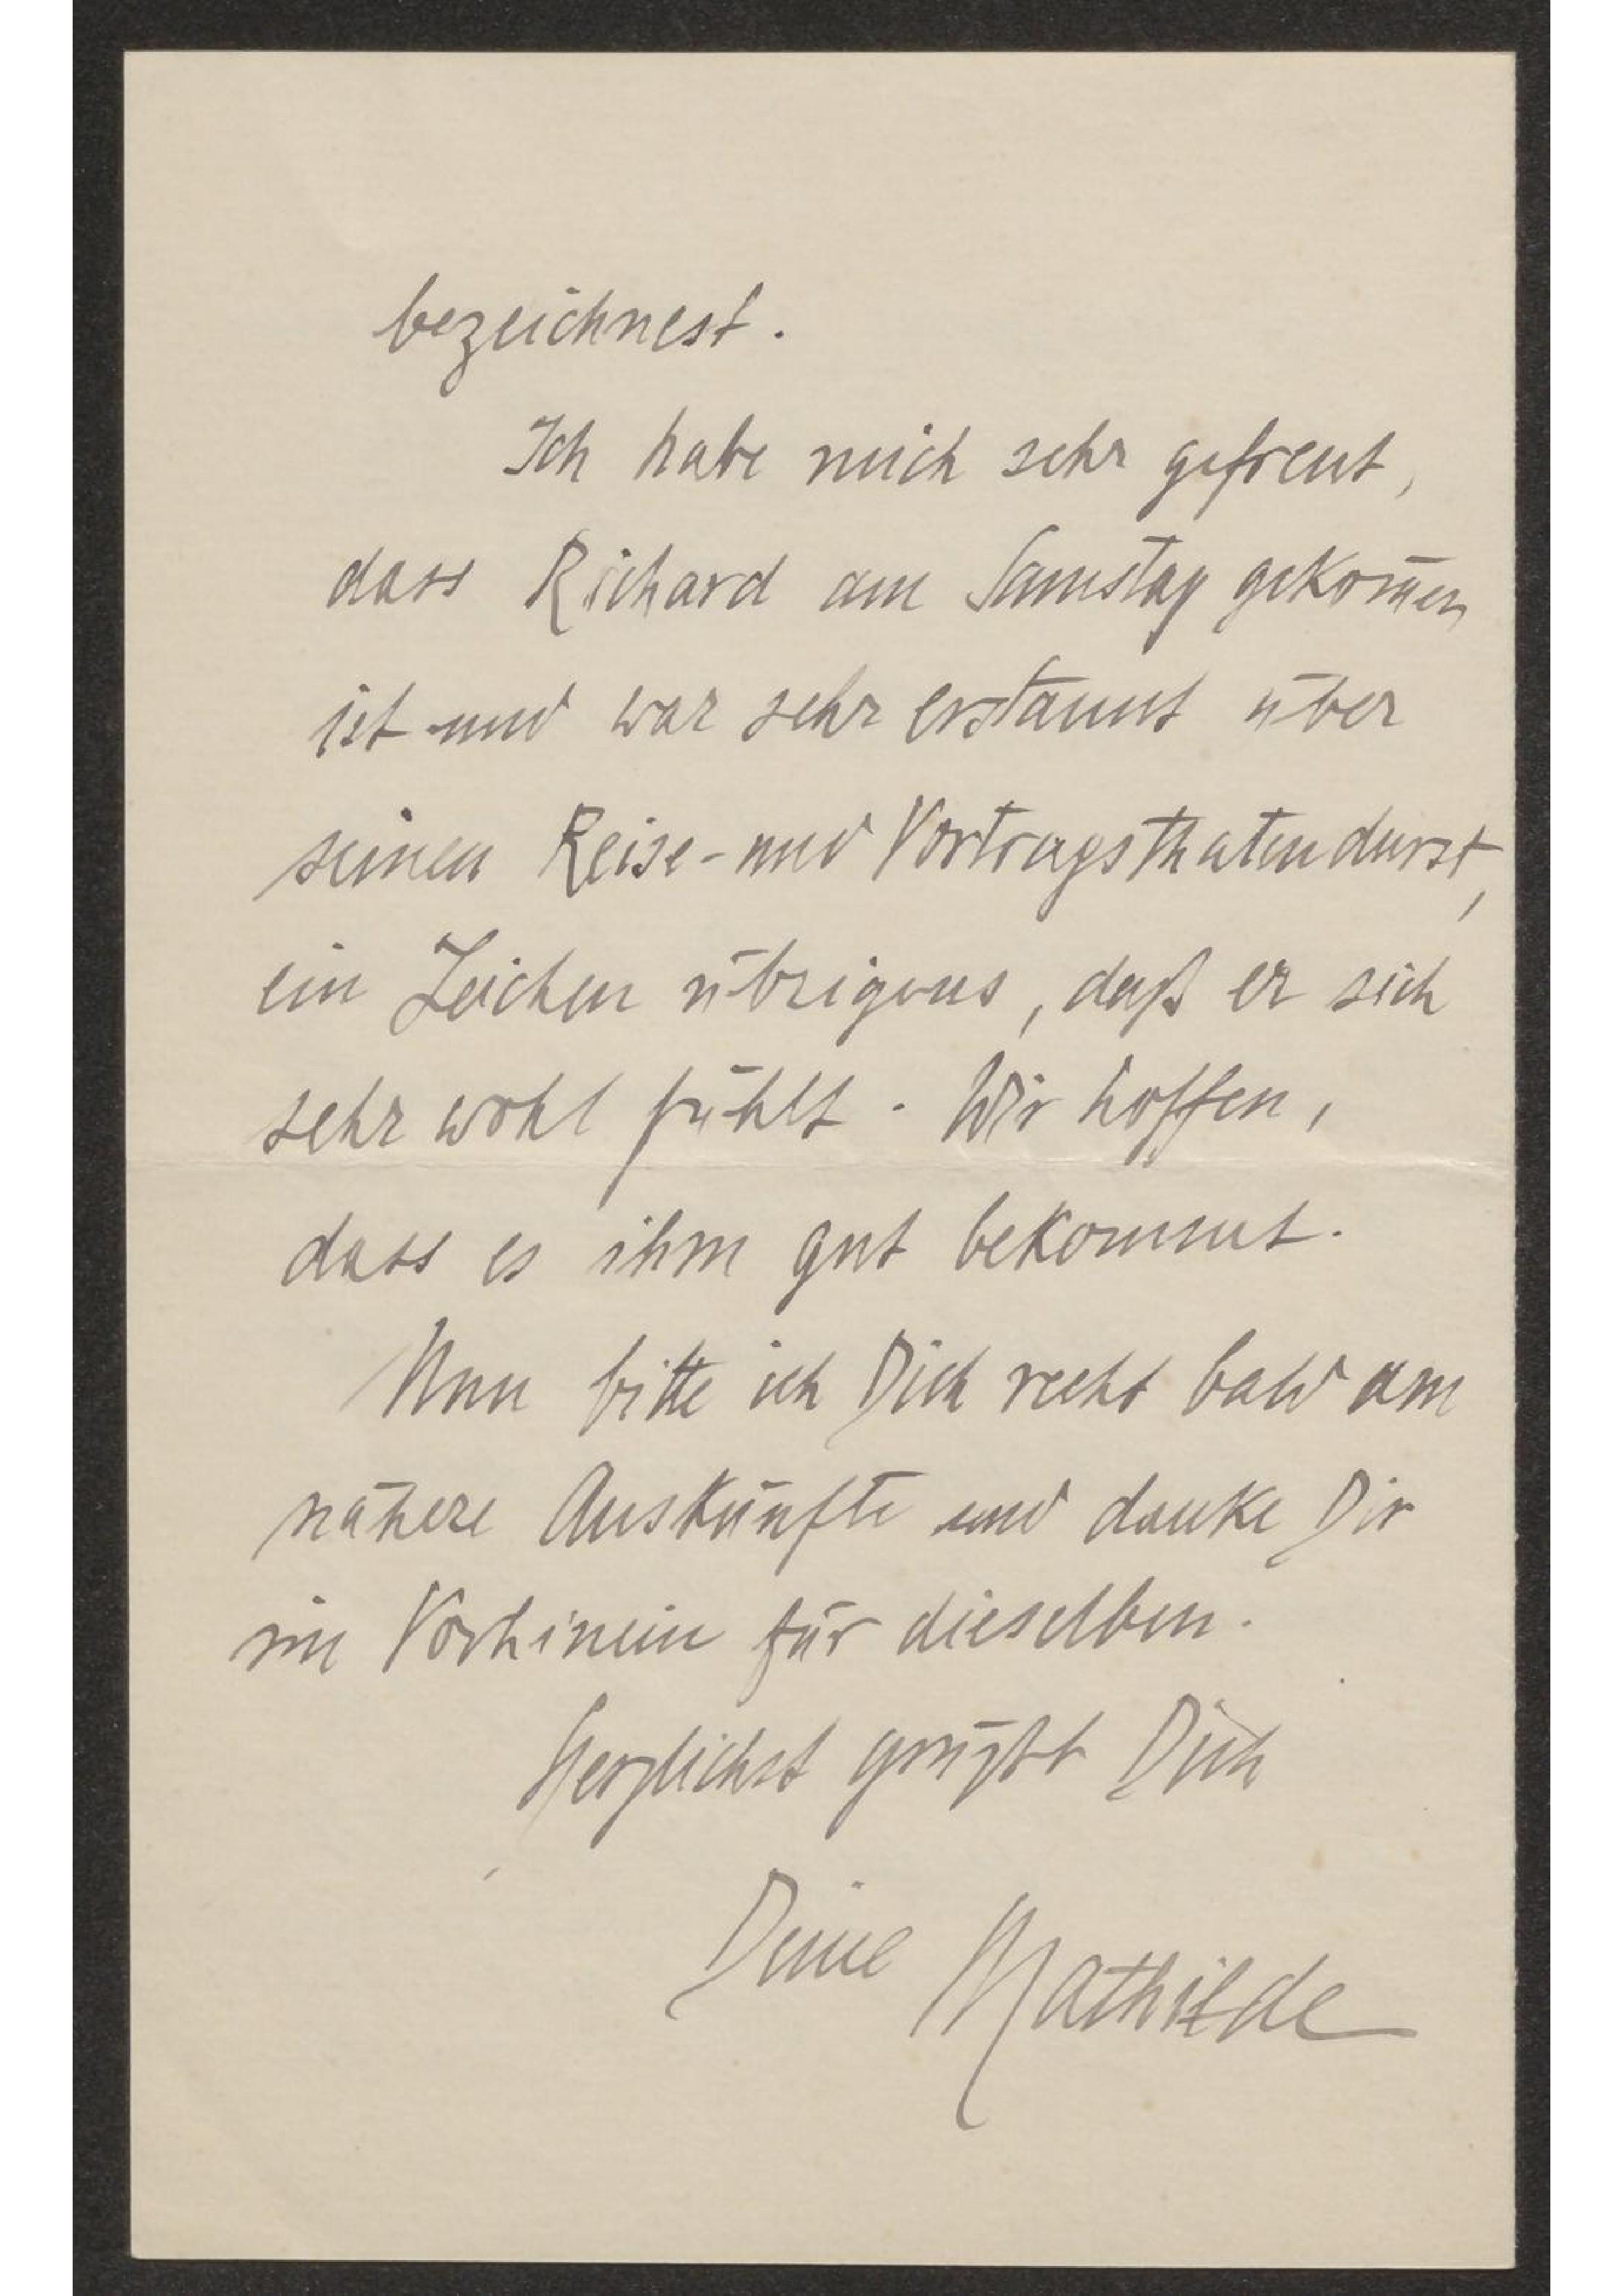 bezeichnest.
Ich habe mich sehr gefreut,
dass Richard am Samstag gekom̅en
ist und war sehr erstaunt über
seinen Reise- und Vortragsthatendurst,
ein Zeichen übrigens, daß er sich
sehr wohl fühlt. Wir hoffen,
dass es ihm gut bekommt.
Nun bitte ich Dich recht bald um
nähere Auskünfte und danke Dir
im Vorhinein für dieselben.
Herzlichst grüßt Dich
Deine Mathilde